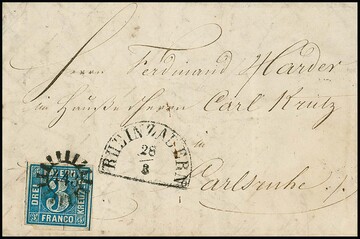 Herrn Ferdinand Harder
im Hauße des Herrn Carl Krutz
in
Carlsruhe
RHEINZABERN
28
8
DREI KREUZER
3
FRANCO